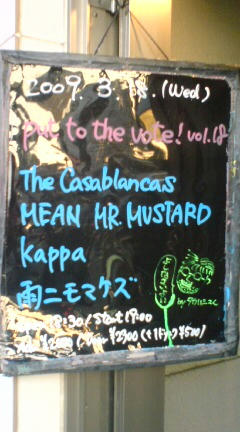 2009. 3. 18. (Wed)
put to the vote! vol.18
The Casablancas
MEAN MR. MUSTARD
kappa
雨ニモマケズ
Open 18:30/Start 19:00
Adv ¥2400/Door ¥2900 (+1ドリンク¥500)